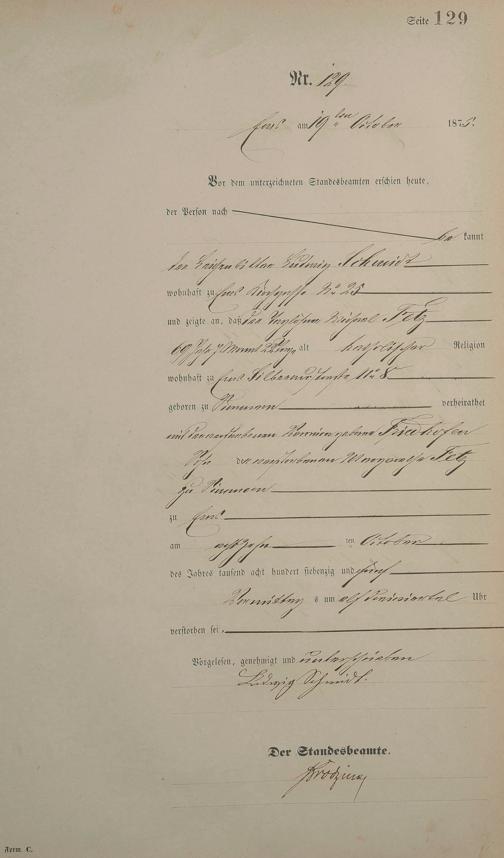 Seite 129
Nr. 129
Ems am 19ten October 1875.
Vor dem unterzeichneten Standesbeamten erschien heute,
der Person nach
be kannt
der Ludwig Schmidt
wohnhaft zu Ems No 28
und zeigte an, daß der Michael Fetz
69 Jahre 7 Monate alt katholischer Religion
wohnhaft zu Ems No 8
geboren zu Simmern verheirathet
mit der verstorbenen geborene Friedhofen
Sohn der verstorbenen Margaretha Fetz
zu Simmern
zu Ems
am achtzehn ten October
des Jahres tausend acht hundert siebenzig und fünf
Vormittag s um elf Uhr
verstorben sei.
Vorgelesen, genehmigt und unterschrieben
Ludwig Schmidt.
Der Standesbeamte.
Form. C.